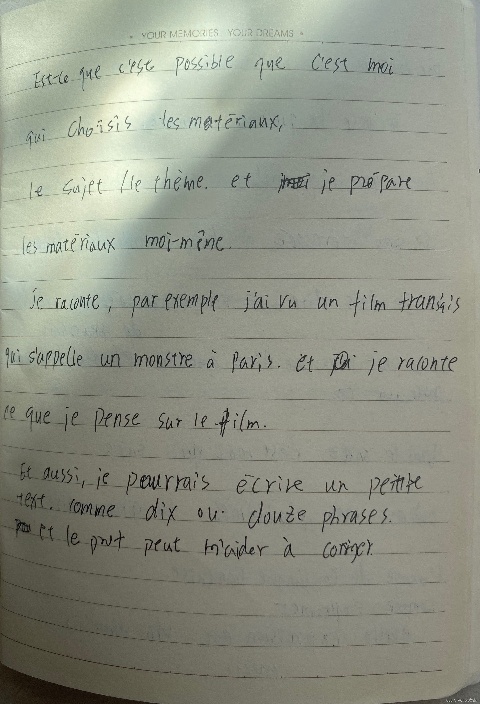 YOUR MEMORIES YOUR DREAMS
Est-ce que c'est possible que c'est moi
qui choisis les matériaux,
le sujet /le thème. et je prépare
les matériaux moi-même.
Je raconte, par exemple j'ai vu un film français
qui s'appelle un monstre à Paris. et je raconte
ce que je pense sur le film.
Et aussi, je pourrais écrire un petite
text. comme dix ou douze phrases.
et le prof peut m'aider à corriger